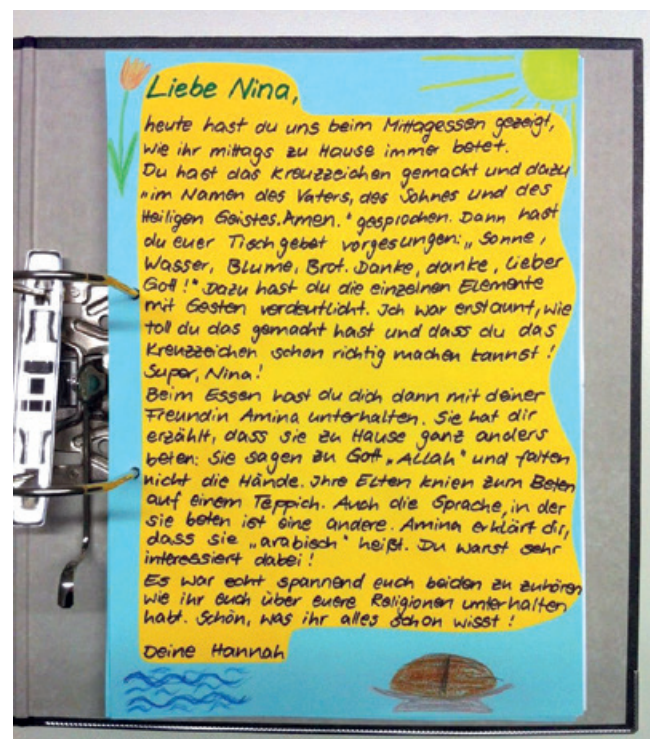 Liebe Nina,
heute hast du uns beim Mittagessen gezeigt,
wie ihr mittags zu Hause immer betet.
Du hast das Kreuzzeichen gemacht und dazu
"im Namen des Vaters, des Sohnes und des
Heiligen Geistes. Amen." gesprochen. Dann hast
du euer Tischgebet vorgesungen: „Sonne,
Wasser, Blume, Brot. Danke, danke, lieber
Gott!" Dazu hast du die einzelnen Elemente
mit Gesten verdeutlicht. Ich war erstaunt, wie
toll du das gemacht hast und dass du das
Kreuzzeichen schon richtig machen kannst!
Super, Nina!
Beim Essen hast du dich dann mit deiner
Freundin Amina unterhalten. Sie hat dir
erzählt, dass sie zu Hause ganz anders
beten: Sie sagen zu Gott „Allah" und falten
nicht die Hände. Ihre Eltern knien zum Beten
auf einem Teppich. Auch die Sprache, in der
sie beten ist eine andere. Amina erklärt dir,
dass sie „arabisch" heißt. Du warst sehr
interessiert dabei!
Es war echt spannend euch beiden zu zuhören
wie ihr euch über euere Religionen unterhalten
habt. Schön, was ihr alles schon wisst!
Deine Hannah